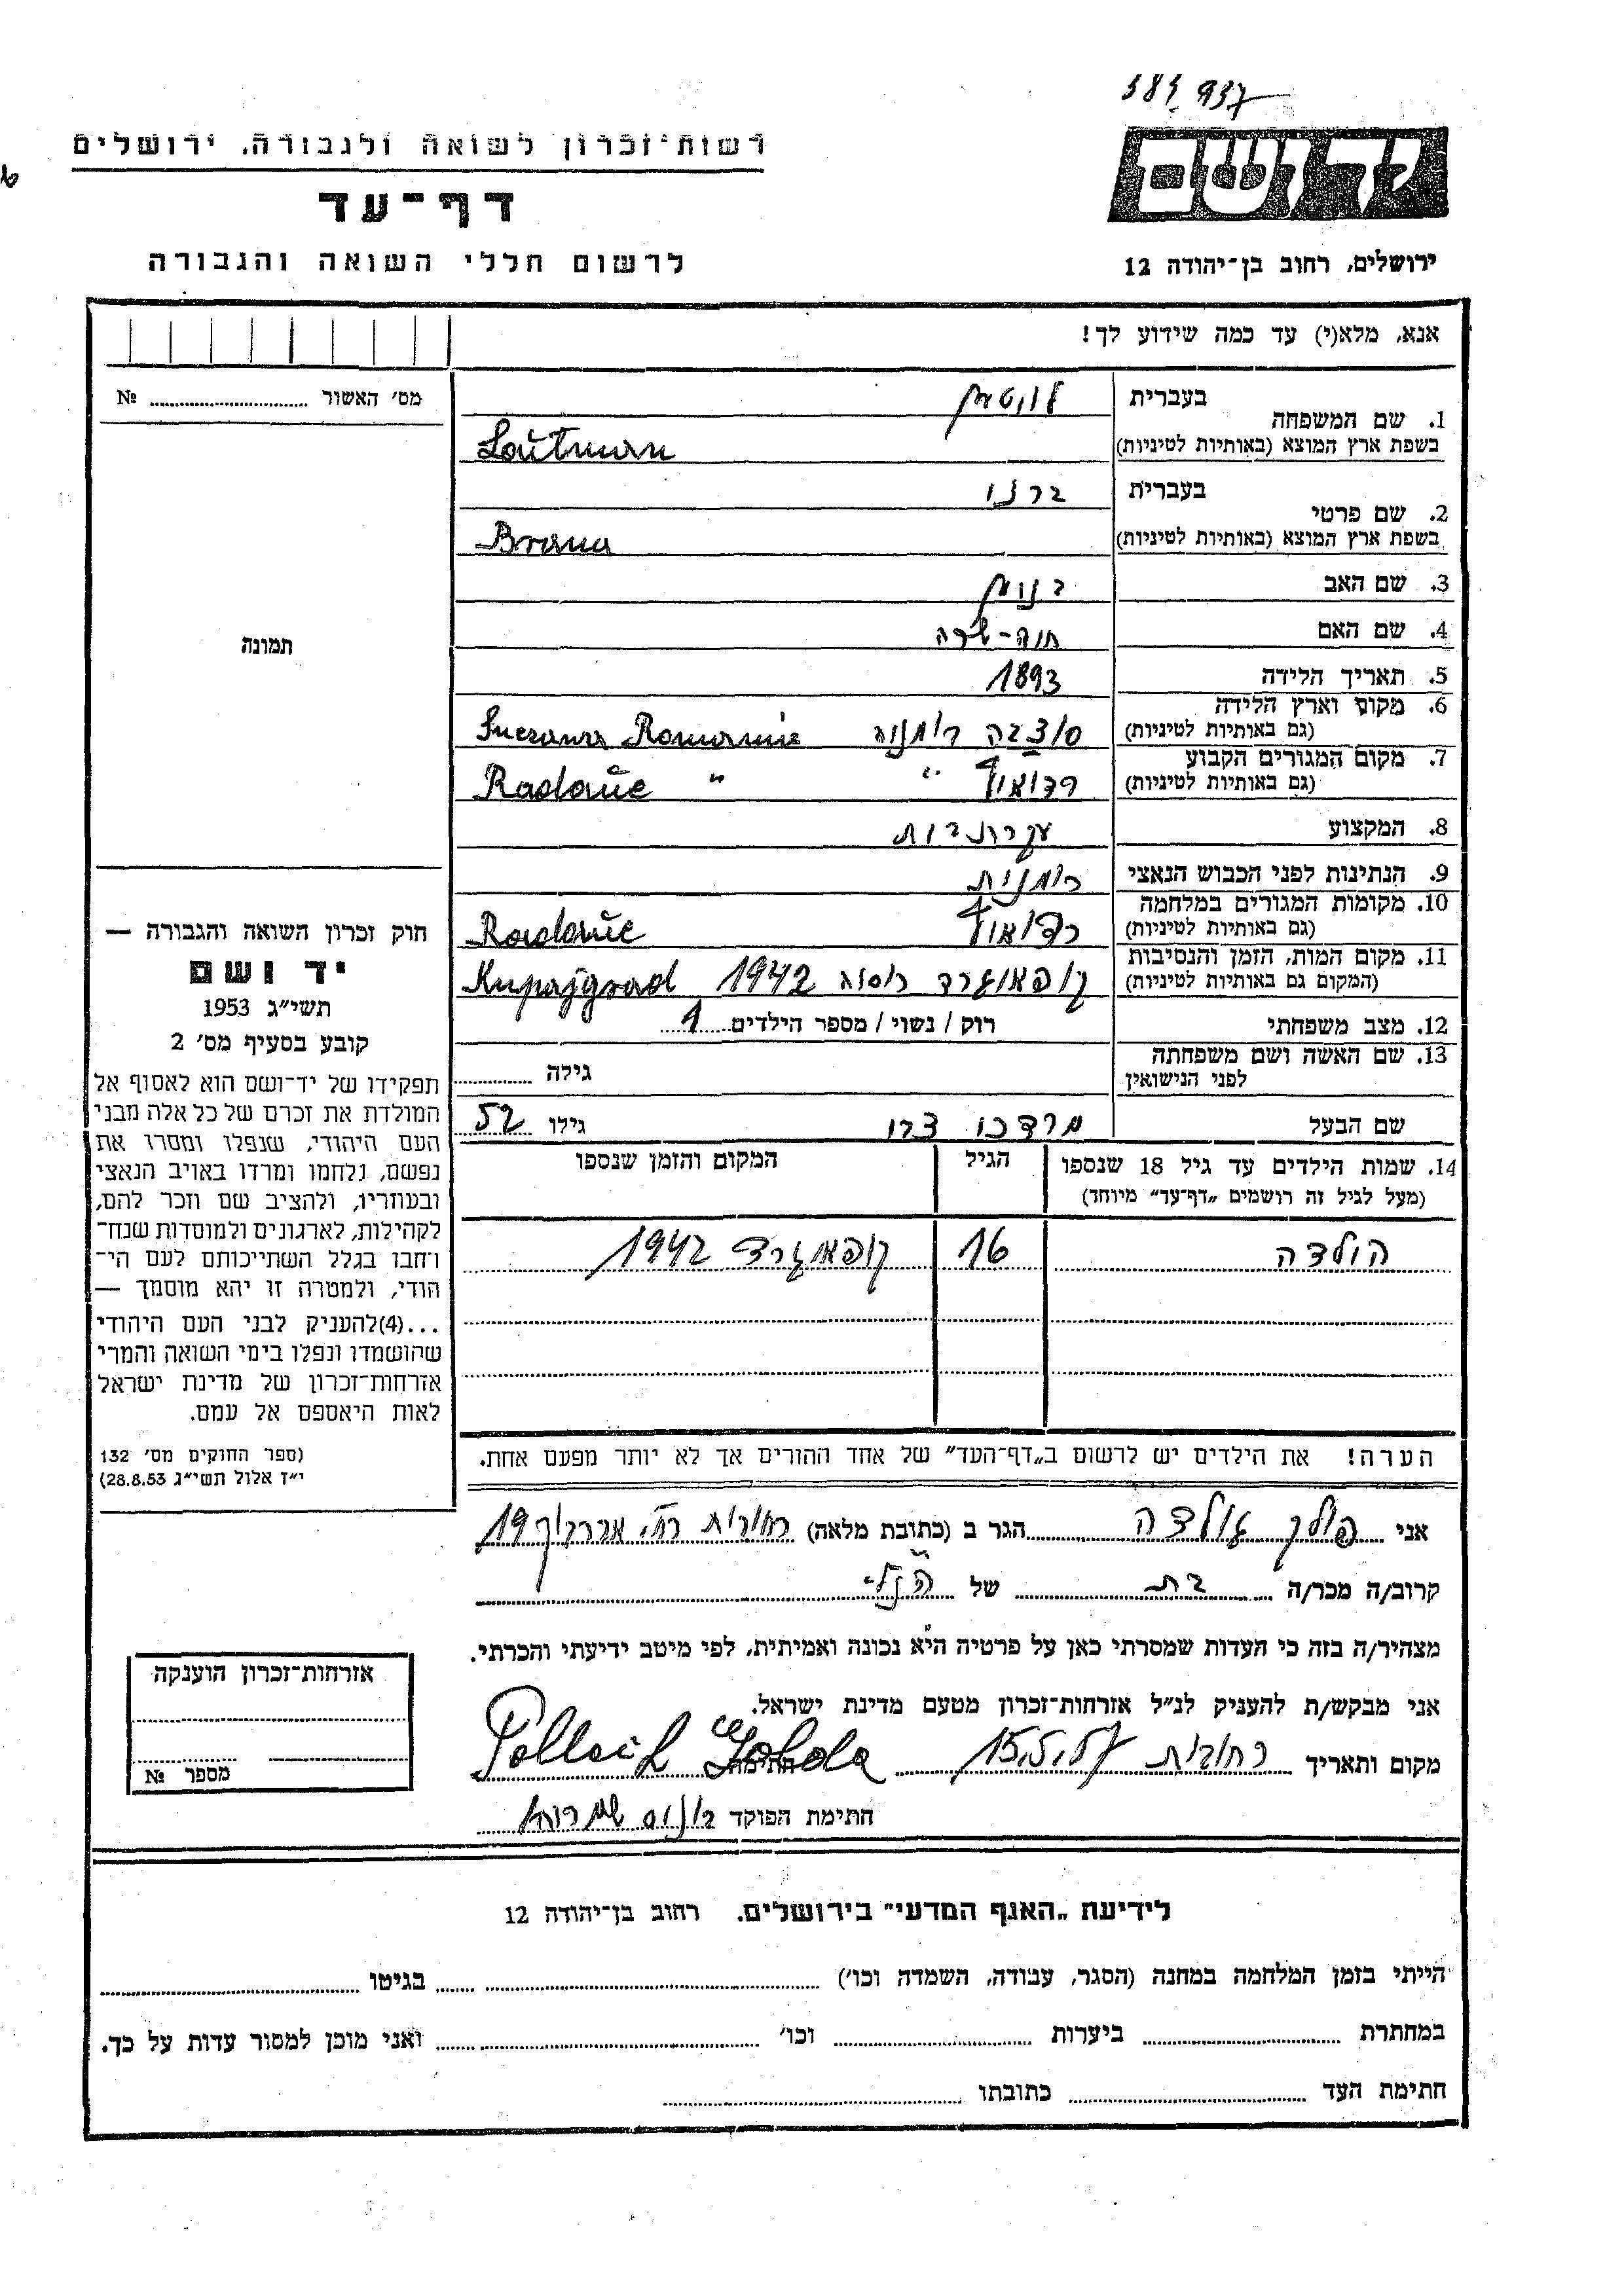 רשות־זכרון לשואה ולגבורה, ירושלים
דף־עד
לרשום חללי השואה והגבורה
ירושלים, רחוב בן־יהודה 12
אנא, מלא(י) עד כמה שידוע לך!
מס׳ האשור №
תמונה
בעברית
1. שם המשפחה
בשפת ארץ המוצא (באותיות לטיניות) Lautman
בעברית
2. שם פרטי
בשפת ארץ המוצא (באותיות לטיניות) Brana
3. שם האב
4. שם האם חיה-שרה
5. תאריך הלידה 1893
6. מקום וארץ הלידה
(גם באותיות לטיניות) רומניה Romania
7. מקום המגורים הקבוע
(גם באותיות לטיניות) רדאוץ " Radautz "
8. המקצוע עקרת בית
9. הנתינות לפני הכבוש הנאצי רומנית
10. מקומות המגורים במלחמה
(גם באותיות לטיניות) רדאוץ
11. מקום המות, הזמן והנסיבות
(המקום גם באותיות לטיניות) רוסיה 1942 Kupajgrad
12. מצב משפחתי רוק / נשוי / מספר הילדים 1
13. שם האשה ושם משפחתה
לפני הנישואין גילה
שם הבעל מרדכי גילו 52
14. שמות הילדים עד גיל 18 שנספו הגיל המקום והזמן שנספו
(מעל לגיל זה רושמים „דף־עד" מיוחד)
הולדה 16 קופאיגרד 1942
הערה! את הילדים יש לרשום ב„דף־העד" של אחד ההורים אך לא יותר מפעם אחת.
חוק זכרון השואה והגבורה —
יד ושם
תשי״ג 1953
קובע בסעיף מס׳ 2
תפקידו של יד־ושם הוא לאסוף אל
המולדת את זכרם של כל אלה מבני
העם היהודי, שנפלו ומסרו את
נפשם, נלחמו ומרדו באויב הנאצי
ובעוזריו, ולהציב שם וזכר להם,
לקהילות, לארגונים ולמוסדות שנח־
רבו בגלל השתייכותם לעם הי־
הודי, ולמטרה זו יהא מוסמך —
...(4)להעניק לבני העם היהודי
שהושמדו ונפלו בימי השואה והמרי
אזרחות־זכרון של מדינת ישראל
לאות היאספם אל עמם.
(ספר החוקים מס׳ 132
י״ז אלול תשי״ג 28.8.53)
אני פולק גולדה הגר ב (כתובת מלאה) רחובות 19
קרוב/ה מכר/ה בת של הנ״ל
מצהיר/ה בזה כי העדות שמסרתי כאן על פרטיה היא נכונה ואמיתית, לפי מיטב ידיעתי והכרתי.
אני מבקש/ת להעניק לנ״ל אזרחות־זכרון מטעם מדינת ישראל.
מקום ותאריך רחובות 15.5.57 חתימה
חתימת הפוקד
אזרחות־זכרון הוענקה
מספר №
לידיעת „האגף המדעי" בירושלים. רחוב בן־יהודה 12
הייתי בזמן המלחמה במחנה (הסגר, עבודה, השמדה וכו׳) בגיטו
במחתרת ביערות וכו׳ ואני מוכן למסור עדות על כך.
חתימת העד כתובתו